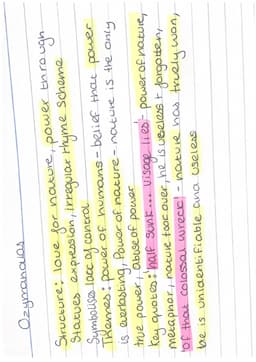 Ozymandias
Structure: love for nature, power through
statues expression, irregular rhyme scheme
symbolises lack of control
Themes: Power of humans - belief that power
is everlasting, Power of nature - nature is the only
true power, abuse of power
Key quotes: 'half sunk... visage lies' - power of nature,
metaphor, nature took over, he is useless + forgotten,
'of that colossal wreck' - nature has truely won,
he is unidentifiable and useless